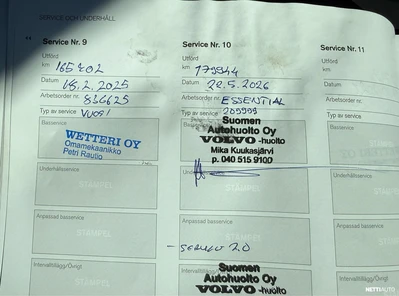 SERVICE OCH UNDERHÅLL
Service Nr. 9
Utförd
km 165702
Datum 18.2.2025
Arbetsorder nr. 836625
Typ av service VUOSI
Basservice
WETTERI OY
Omamekaanikko
Petri Rautio
Underhållsservice
STÄMPEL
Anpassad basservice
STÄMPEL
Intervalltillägg/Övrigt
STÄMPEL
Service Nr. 10
Utförd
km 179944
Datum 22.5.2026
Arbetsorder nr. ESSENTIAL
Typ av service 209999
Suomen
Autohuolto Oy
VOLVO-huolto
Mika Kuukasjärvi
p. 040 515 9100
Anpassad basservice
- SERVICE 2.0
Intervalltillägg/Övrigt
Suomen
Autohuolto Oy
VOLVO-huolto
Service Nr. 11
Utförd
km
Datum
Arbetsorder nr.
Typ av service
Basservice
STÄMPEL
Underhållsservice
Anpassad basservice
STÄMPEL
Intervalltillägg/Övrigt
NETTIAUTO